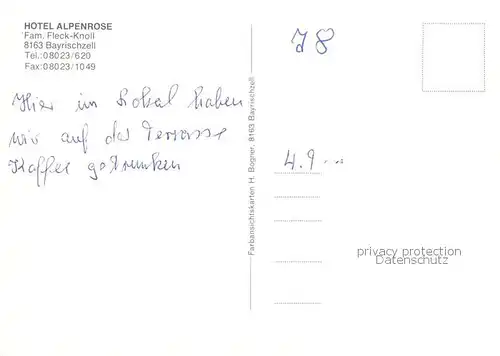 HOTEL ALPENROSE
Fam. Fleck-Knoll
8163 Bayrischzell
Tel.: 08023/620
Fax: 08023/1049
Hier im Lokal haben
wir auf der Terrasse
Kaffee getrunken
Farbansichtskarten H. Bogner, 8163 Bayrischzell
J8
4.9...
privacy protection
Datenschutz